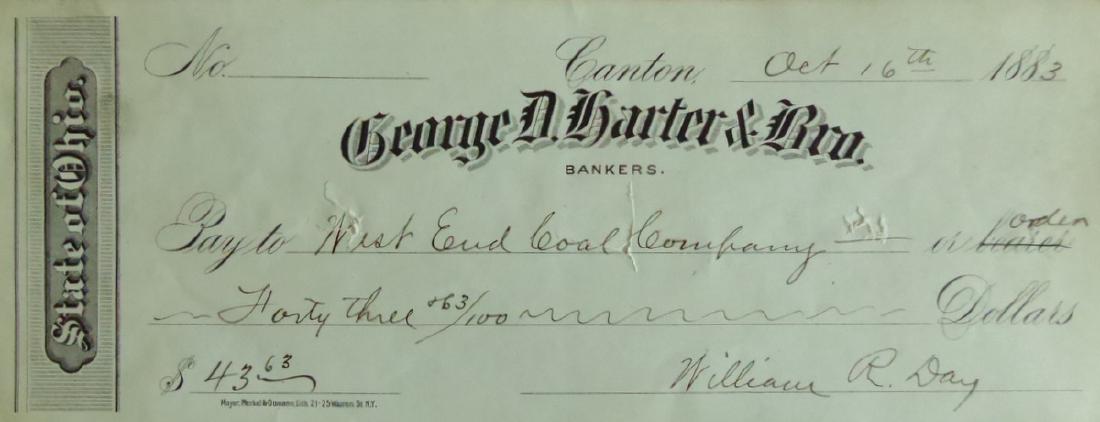 State of Ohio.
No. Canton, Oct 16th 1883
George D. Harter & Bro.
BANKERS.
Pay to West End Coal Company or bearer order
Forty three & 63/100 Dollars
$ 43 63
William R. Day
Lith. 21-25 Warren St. N.Y.